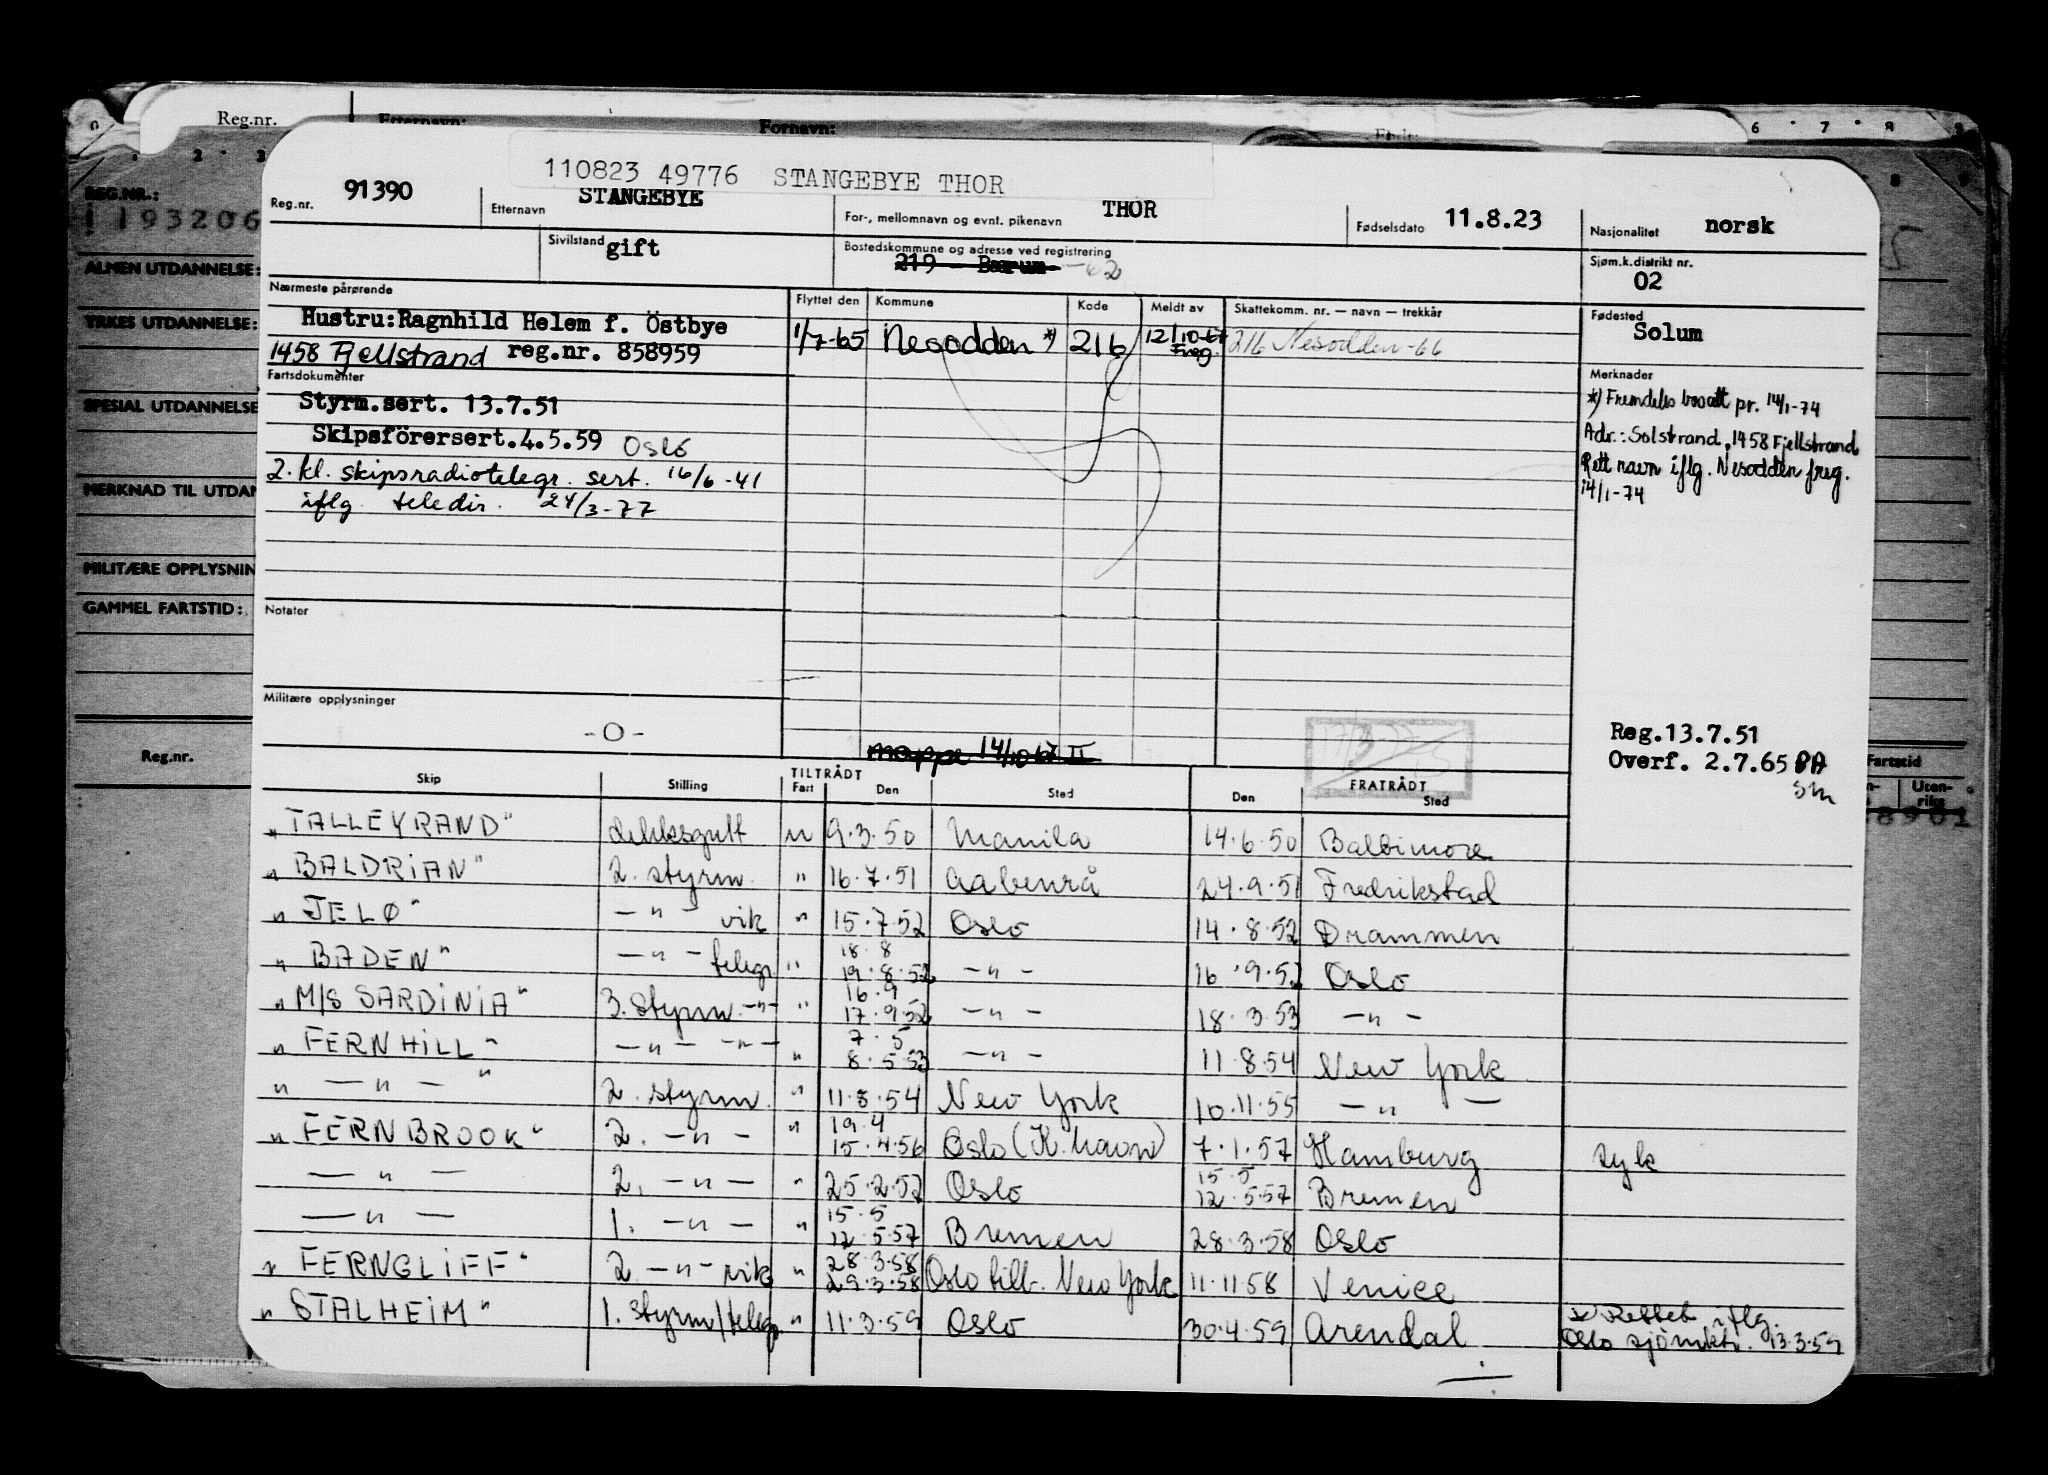 Reg.nr. Etternavn: Fornavn:
6 7 8 9
2 3
REG.NR.:
1193206
ALMEN UTDANNELSE:
YRKES UTDANNELSE:
SPESIAL UTDANNELSE
MERKNAD TIL UTDAN
MILITÆRE OPPLYSNIN
GAMMEL FARTSTID:
Reg.nr.
Fartstid
Uten-
riks
110823 49776 STANGEBYE THOR
Reg.nr. 91390 Etternavn STANGEBYE For-, mellomnavn og evnt. pikenavn THOR Fødselsdato 11.8.23 Nasjonalitet norsk
Sivilstand gift Bostedskommune og adresse ved registrering 219 - Bærum -62 Sjøm.k.distrikt nr. 02
Nærmeste pårørende Flyttet den Kommune Kode Meldt av Skattekomm. nr. — navn — trekkår Fødested
Hustru: Ragnhild Helem f. Östbye 1/7-65 Nesodden *) 216 12/10-67 Freg. 216 Nesodden-66 Solum
1458 Fjellstrand reg.nr. 858959
Fartsdokumenter Merknader
Styrm.sert. 13.7.51
Skipsförersert.4.5.59 Oslo
2. kl. skipsradiotelegr. sert. 16/6-41
iflg. teledir. 24/3-77
*) Fremdeles bosatt pr. 14/1-74
Adr.: Solstrand, 1458 Fjellstrand
Rett navn iflg. Nesodden freg.
14/1-74
Notater
Militære opplysninger
-0-
mappe 14/10-67 II
Reg.13.7.51
Overf. 2.7.65 PA
Skip Stilling TILTRÅDT Fart Den Sted FRATRÅDT Den Sted
"TALLEYRAND" dekksgutt u 9.3.50 Manila 14.6.50 Baltimore
"BALDRIAN" 2. styrm. " 16.7.51 Aabenrå 24.9.51 Fredrikstad
"JELØ" —"— vik " 15.7.52 Oslo 14.8.52 Drammen
"BADEN" —"— telegr. " 18.8 19.8.52 —"— 16.9.52 Oslo
"M/S SARDINIA" 3. styrm. —"— " 16.9 17.9.52 —"— 18.3.53 —"—
"FERNHILL" —"— —"— " 7.5 8.5.53 —"— 11.8.54 New York
" —"— " 2. styrm. " 11.8.54 New York 10.11.55 —"—
"FERNBROOK" 2. —"— " 19.4 15.4.56 Oslo (K.havn) 7.1.57 Hamburg syk
—"— 2. —"— " 25.2.57 Oslo 15.5 12.5.57 Bremen
—"— 1. —"— " 15.5 12.5.57 Bremen 28.3.58 Oslo
"FERNGLIFF" 2. —"— vik " 28.3.58 29.3.58 Oslo tilt. New York 11.11.58 Venice
"STALHEIM" 1. styrm/telegr. " 11.3.59 Oslo 30.4.59 Arendal
Rettet iflg.
Oslo sjømktr. 13.3.59